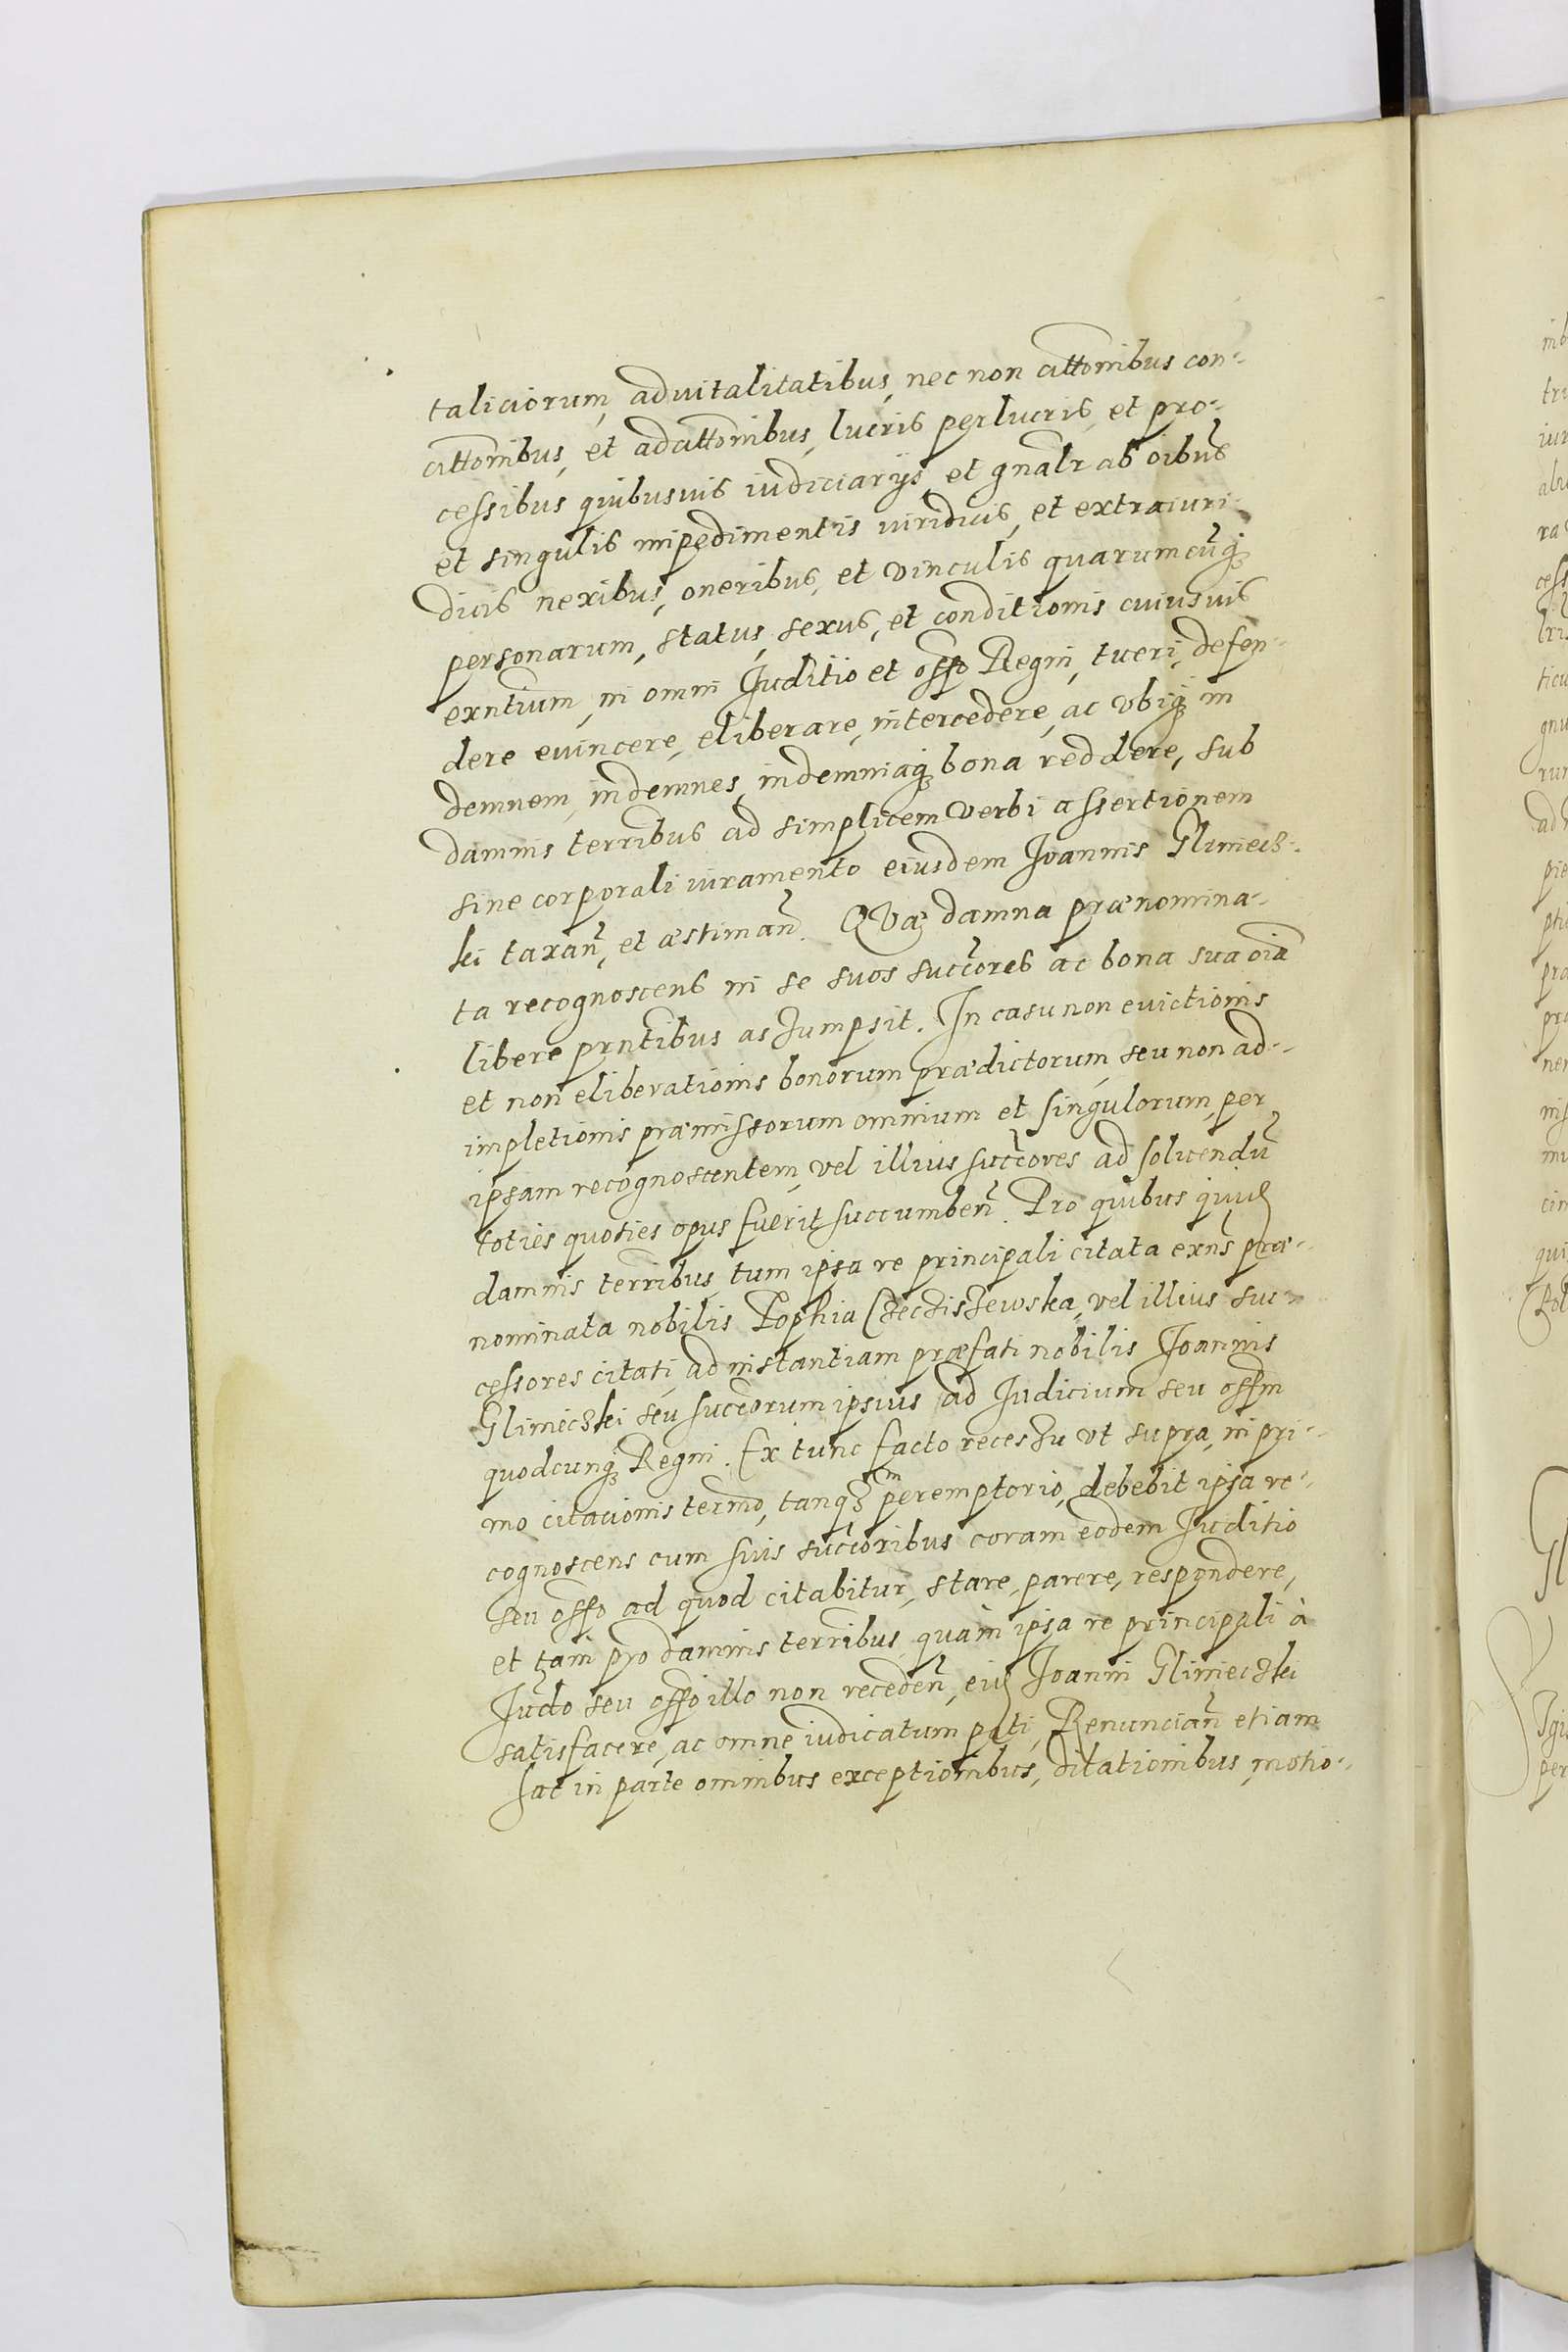 taliciorum, advitalitatibus, nec non attonibus con-
attonibus, et adattonibus, lucris perlucris, et pro-
cessibus quibusvis iudiciarijs, et gnalr ab oibus
et singulis impedimentis iuridicis, et extraiuri-
dicis nexibus, oneribus, et vinculis quarumcunq
personarum, status, sexus, et conditionis cuiusvis
exntium, in omni Juditio et offo Regni, tueri, defen-
dere evincere, eliberare, intercedere, ac vbiq in
demnem, indemnes, indemniaq bona reddere, sub
damnis terribus ad simplicem verbi assertionem
sine corporali iuramento eiusdem Joannis Gliniecz-
ki taxan, et æstiman. QVæ damna prænomina-
ta recognoscens in se suos succores ac bona sua oia
libere prntibus assumpsit. In casu non evictionis
et non eliberationis bonorum prædictorum, seu non ad-
impletionis præmissorum omnium et singulorum, per
ipsam recognoscentem, vel illius succores ad solvendu
toties quoties opus fuerit succumben. Pro quibus quid
damnis terribus, tum ipsa re principali citata exns præ-
nominata nobilis Zophia Czecziszewska, vel illius suc-
cessores citati, ad instantiam præfati nobilis Joannis
Glinieczki seu succorum ipsius ad Judicium seu offm
quodcunq Regni. Ex tunc facto recessu vt supra, in pri-
mo citationis termo, tanqm peremptorio, debebit ipsa re-
cognoscens cum suis succoribus coram eodem Juditio
seu offo ad quod citabitur, stare, parere, respondere,
et tam pro damnis terribus, quàm ipsa re principali à
Judo seu offo illo non receden, eid Joanni Glinieczki
satisfacere, ac omne iudicatum pati, Renuncian etiam
hac in parte omnibus exceptionibus, dilationibus, motio-